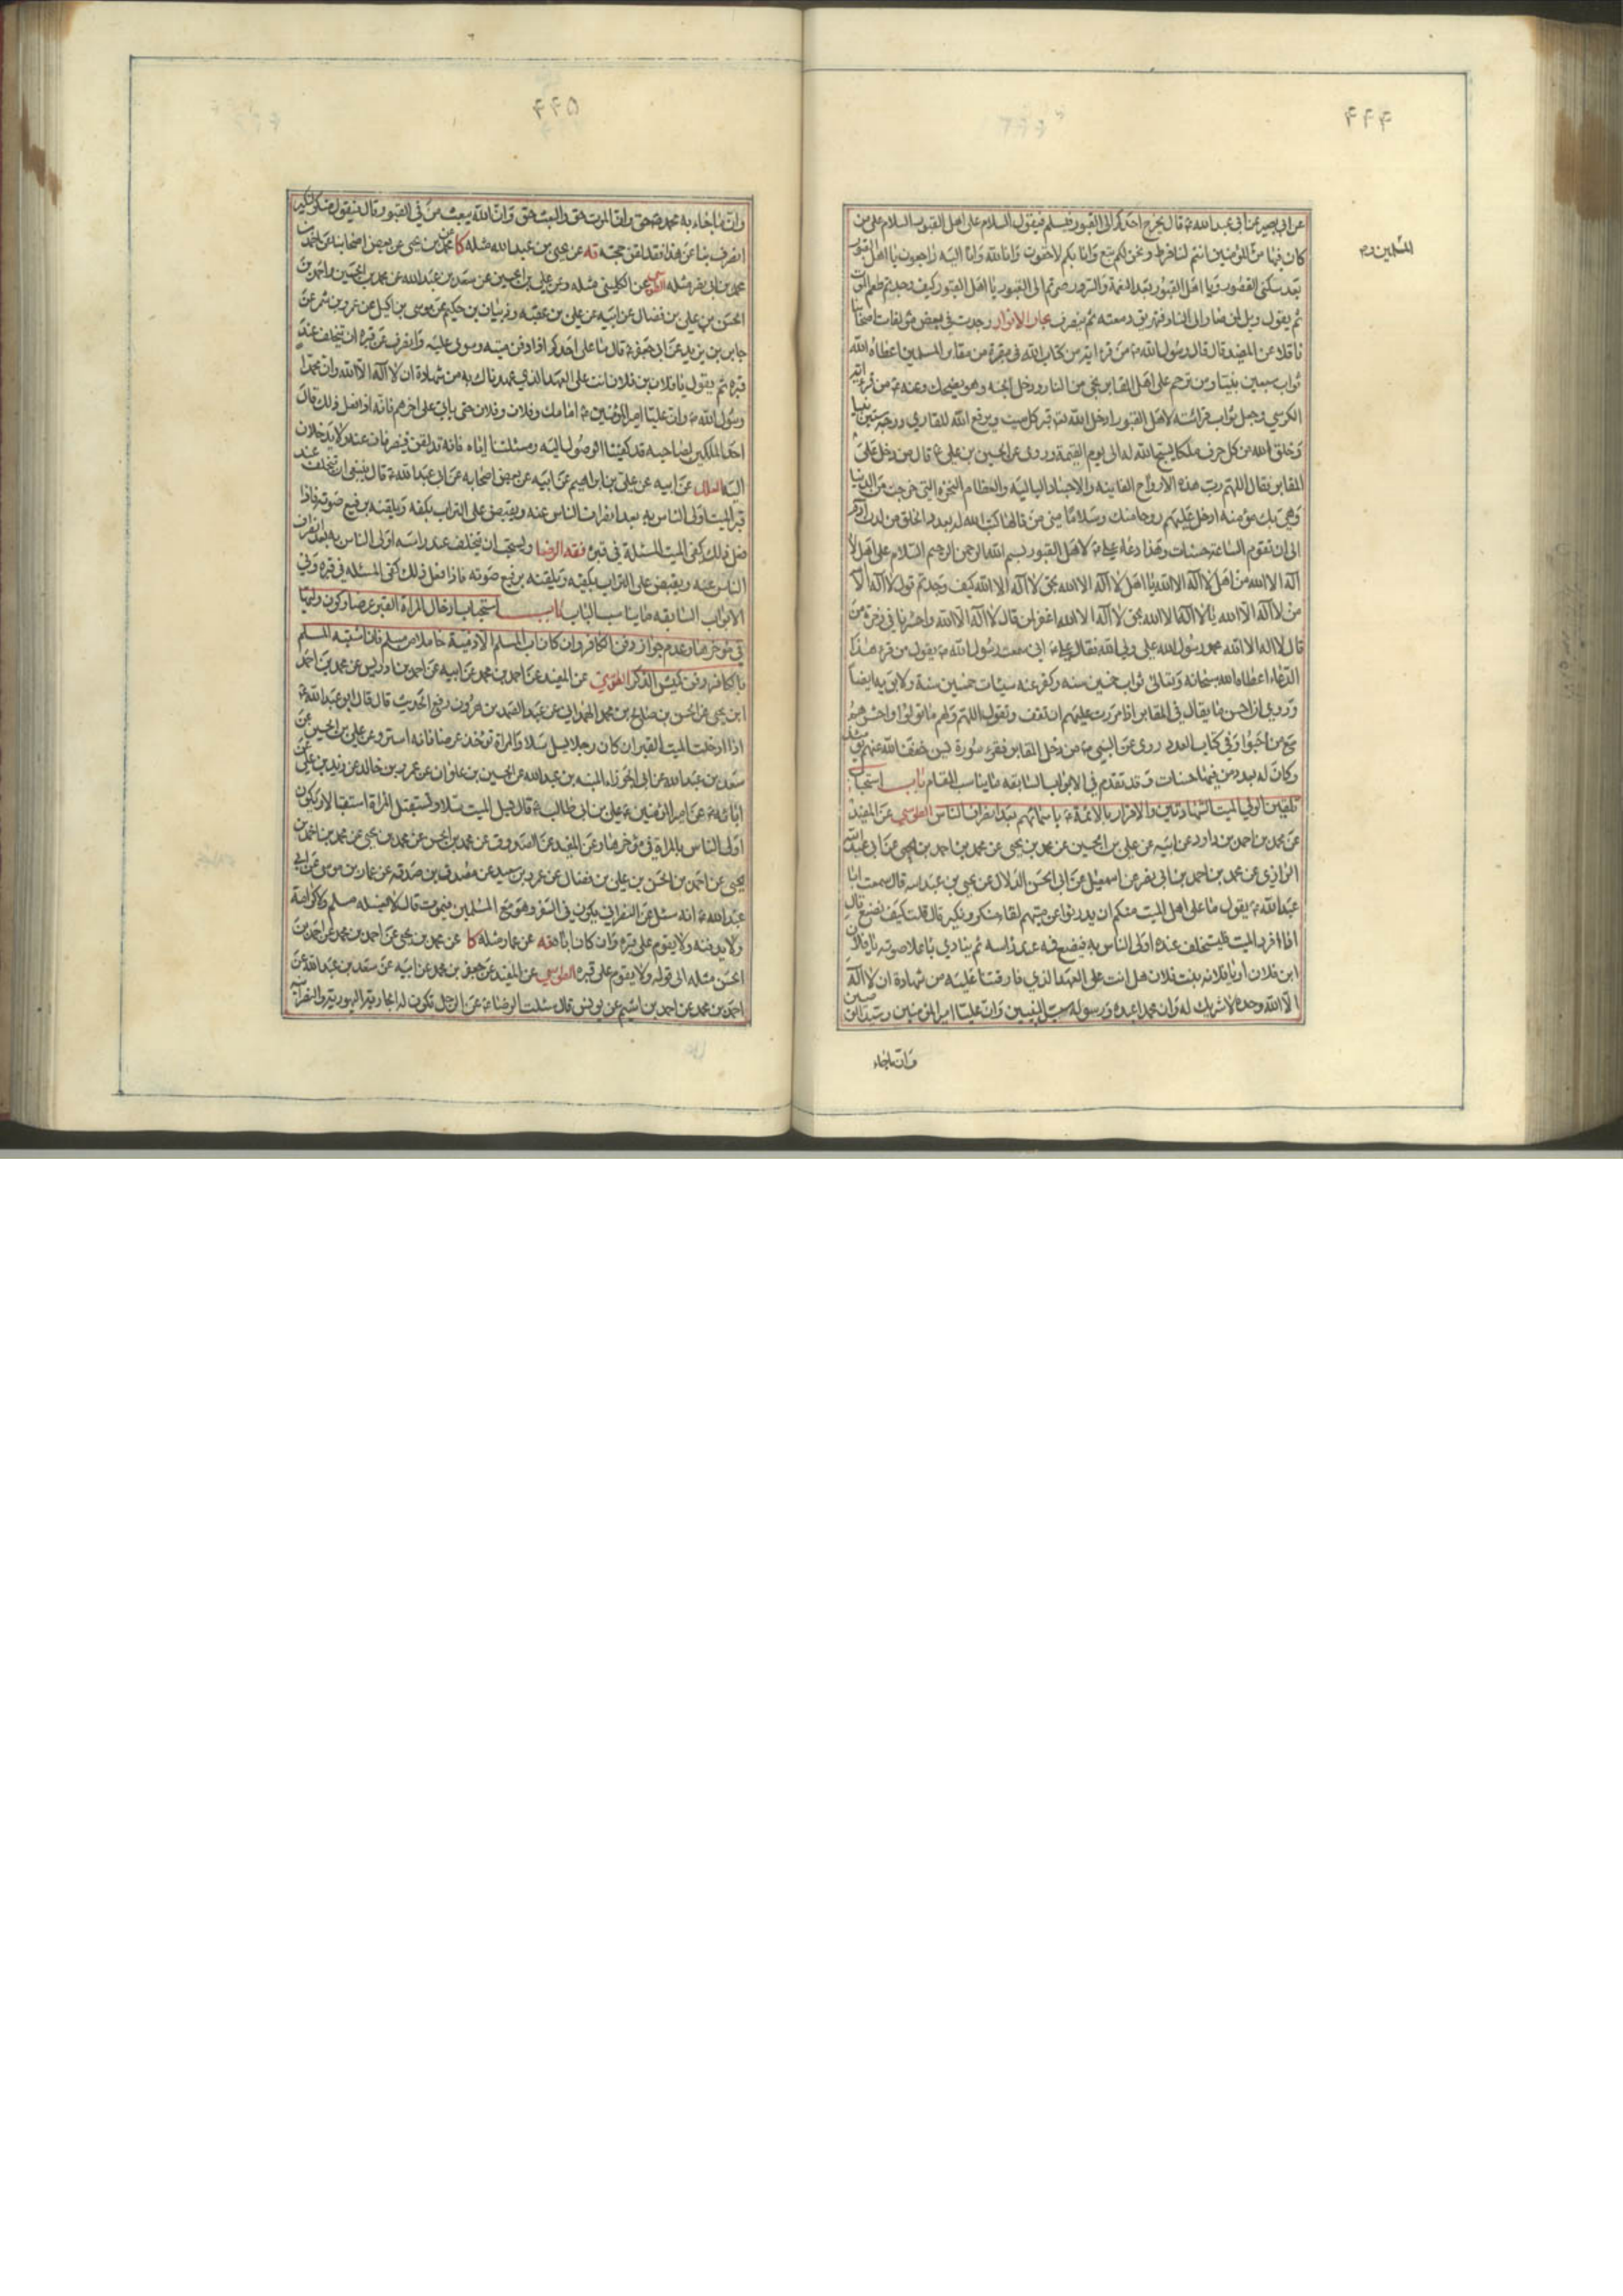 ۴۴۴
عن ابي بصير عن ابي عبد الله ع قال يخرج احدكم الى القبور فيسلم فيقول السلام على اهل القبور السلام على من
كان فيها من المؤمنين انتم لنا فرط ونحن لكم تبع وانا بكم لاحقون وانا لله وانا اليه راجعون يا اهل القبور
بعد سكنى القصور ويا اهل القبور بعد النعمة والسرور صرتم الى القبور يا اهل القبور كيف وجدتم طعم الموت
ثم يقول ويل لمن صار الى النار فيهريق دمعته ثم ينصرف بحار الانوار وجدت في بعض مؤلفات اصحابنا
ناقلا عن المفيد قال قال رسول الله ص من قرء اية من كتاب الله في مقبرة من مقابر المسلمين اعطاه الله
ثواب سبعين نبيا ومن ترحم على اهل المقابر نجى من النار ودخل الجنة وهو يضحك وعنه ص من قرء اية
الكرسي وجعل ثواب قرائته لاهل القبور ادخل الله قبر كل ميت ويرفع الله للقاري درجة ستين نبيا
وخلق الله من كل حرف ملكا يسبح الله له الى يوم القيمة وروى عن الحسين بن علي ع قال من دخل على
المقابر فقال اللهم رب هذه الارواح الفانية والاجساد البالية والعظام النخرة التي خرجت من الدنيا
وهي بك مؤمنة ادخل عليهم روحا منك وسلاما مني من قالها كتب الله له بعدد الخلق من لدن آدم
الى ان تقوم الساعة حسنات وهذا دعاء علي ع لاهل القبور بسم الله الرحمن الرحيم السلام على اهل لا
اله الا الله من اهل لا اله الا الله يا اهل لا اله الا الله بحق لا اله الا الله كيف وجدتم قول لا اله الا
من لا اله الا الله يا لا اله الا الله بحق لا اله الا الله اغفر لمن قال لا اله الا الله واحشرنا في زمرة من
قال لا اله الا الله محمد رسول الله علي ولي الله فقال علي ع اني سمعت رسول الله ص يقول من قرء هذا
الدعاء اعطاه الله سبحانه وتعالى ثواب خمسين سنه وكفر عنه سيئات خمسين سنة ولابويه ايضا
وروي ان احسن ما يقال في المقابر اذا مررت عليهم ان تقف وتقول اللهم ولهم ما تولوا واحشرهم
مع من احبوا وفي كتاب العدد روى عن النبي ص من دخل المقابر فقرء سورة يس خفف الله عنهم يومئذ
وكان له بعدد من فيها حسنات وقد تقدم في الابواب السابقه ما يناسب المقام باب استحباب
تلقين الولي الميت الشهادتين والاقرار بالائمة ع باسمائهم بعد انصراف الناس الطوسي عن المفيد
عن محمد بن احمد بن داود عن ابيه عن علي بن الحسين عن محمد بن يحيى عن محمد بن احمد بن يحيى عن ابي عبد الله
الرازي عن محمد بن احمد بن ابي نصر عن اسمعيل عن ابي الحسن الدلال عن يحيى بن عبد الله قال سمعت ابا
عبد الله ع يقول ما على اهل الميت منكم ان يدرئوا عن ميتهم لقاء منكر ونكير قال قلت كيف نصنع قال
اذا افرد الميت فليتخلف عنده اولى الناس به فيضع فمه عند راسه ثم ينادي باعلا صوته يا فلان
ابن فلان او يا فلانه بنت فلان هل انت على العهد الذي فارقتنا عليه من شهادة ان لا اله
الا الله وحده لا شريك له وان محمدا عبده ورسوله سيد النبيين وان عليا امير المؤمنين وسيد الوصيين
وان ما جاء
المسلمين
۴۴۵
وان ما جاء به محمد ص حق وان الموت حق والبعث حق وان الله يبعث من في القبور قال فيقول منكر لنكير
انصرف بنا عن هذا فقد لقن حجته يه عن يحيى بن عبد الله مثله كا محمد بن يحيى عن بعض اصحابنا عن احمد بن
محمد بن ابي نصر مثله الطوسي عن الكليني مثله وعن علي بن الحسين عن سعد بن عبد الله عن محمد بن الحسين واحمد بن
الحسن بن علي بن فضال عن ابيه عن علي بن عقبة وذبيان بن حكيم عن موسى بن اكيل عن عمرو بن شمر عن
جابر بن يزيد عن ابي جعفر ع قال ما على احدكم اذا دفن ميته وسوى عليه وانصرف عن قبره ان يتخلف عند
قبره ثم يقول يا فلان بن فلان انت على العهد الذي عهدناك به من شهادة ان لا اله الا الله وان محمدا
رسول الله ص وان عليا امير المؤمنين ع امامك وفلان وفلان حتى ياتي على اخرهم فانه اذا فعل ذلك قال
احد الملكين لصاحبه قد كفينا الوصول اليه ومسئلتنا اياه فانه قد لقن فينصرفان عنه ولا يدخلان
اليه العلل عن ابيه عن علي بن ابراهيم عن ابيه عن بعض اصحابه عن ابي عبد الله ع قال ينبغي ان يتخلف عند
قبر الميت اولى الناس به بعد انصراف الناس عنه ويقبض على التراب بكفه ويلقنه برفيع صوته فاذا
فعل ذلك كفى الميت المسئلة في قبره فقه الرضا ويستحب ان يتخلف عند راسه اولى الناس به بعد انصراف
الناس عنه ويقبض على التراب بكفيه ويلقنه برفيع صوته فاذا فعل ذلك كفى المسئله في قبره وفي
الابواب السابقه ما يناسب الباب باب استحباب ادخال المراة القبر عرضا وكون وليها
في مؤخرها وعدم جواز دفن الكافر وان كان اب المسلم الا ذمية حاملا من مسلم فان اشتبه المسلم
بالكافر دفن كميش الذكر الطوسي عن المفيد عن احمد بن محمد عن ابيه عن احمد بن ادريس عن محمد بن احمد
ابن يحيى عن الحسن بن صالح بن محمد الهمداني عن عبد الصمد بن هرون رفع الحديث قال قال ابو عبد الله ع
اذا ادخلت الميت القبر ان كان رجلا يسل سلا والمراة توخذ عرضا فانه استر وعن علي بن الحسين عن
سعد بن عبد الله عن ابي الجوزاء المنبه بن عبد الله عن الحسين بن علوان عن عمرو بن خالد عن زيد بن علي عن
ابائه ع عن امير المؤمنين علي بن ابي طالب ع قال يسل الميت سلا وتستقبل المراة استقبالا ويكون
اولى الناس بالمراة في مؤخرها وعن المفيد عن الصدوق عن محمد بن الحسن عن محمد بن يحيى عن محمد بن احمد بن
يحيى عن احمد بن الحسن بن علي بن فضال عن عمرو بن سعيد عن مصدق بن صدقه عن عمار بن موسى عن ابي
عبد الله ع انه سئل عن النصراني يكون في السفر وهو مع المسلمين فيموت قال لا يغسله مسلم ولا كرامة
ولا يدفنه ولا يقوم على قبره وان كان اباه يه عن عمار مثله كا عن محمد بن يحيى عن احمد بن محمد عن احمد بن
الحسن مثله الى قوله ولا يقوم على قبره الطوسي عن المفيد عن جعفر بن محمد عن ابيه عن سعد بن عبد الله عن
احمد بن محمد عن احمد بن اشيم عن يونس قال سئلت الرضا ع عن الرجل تكون له الجارية اليهودية والنصرانية